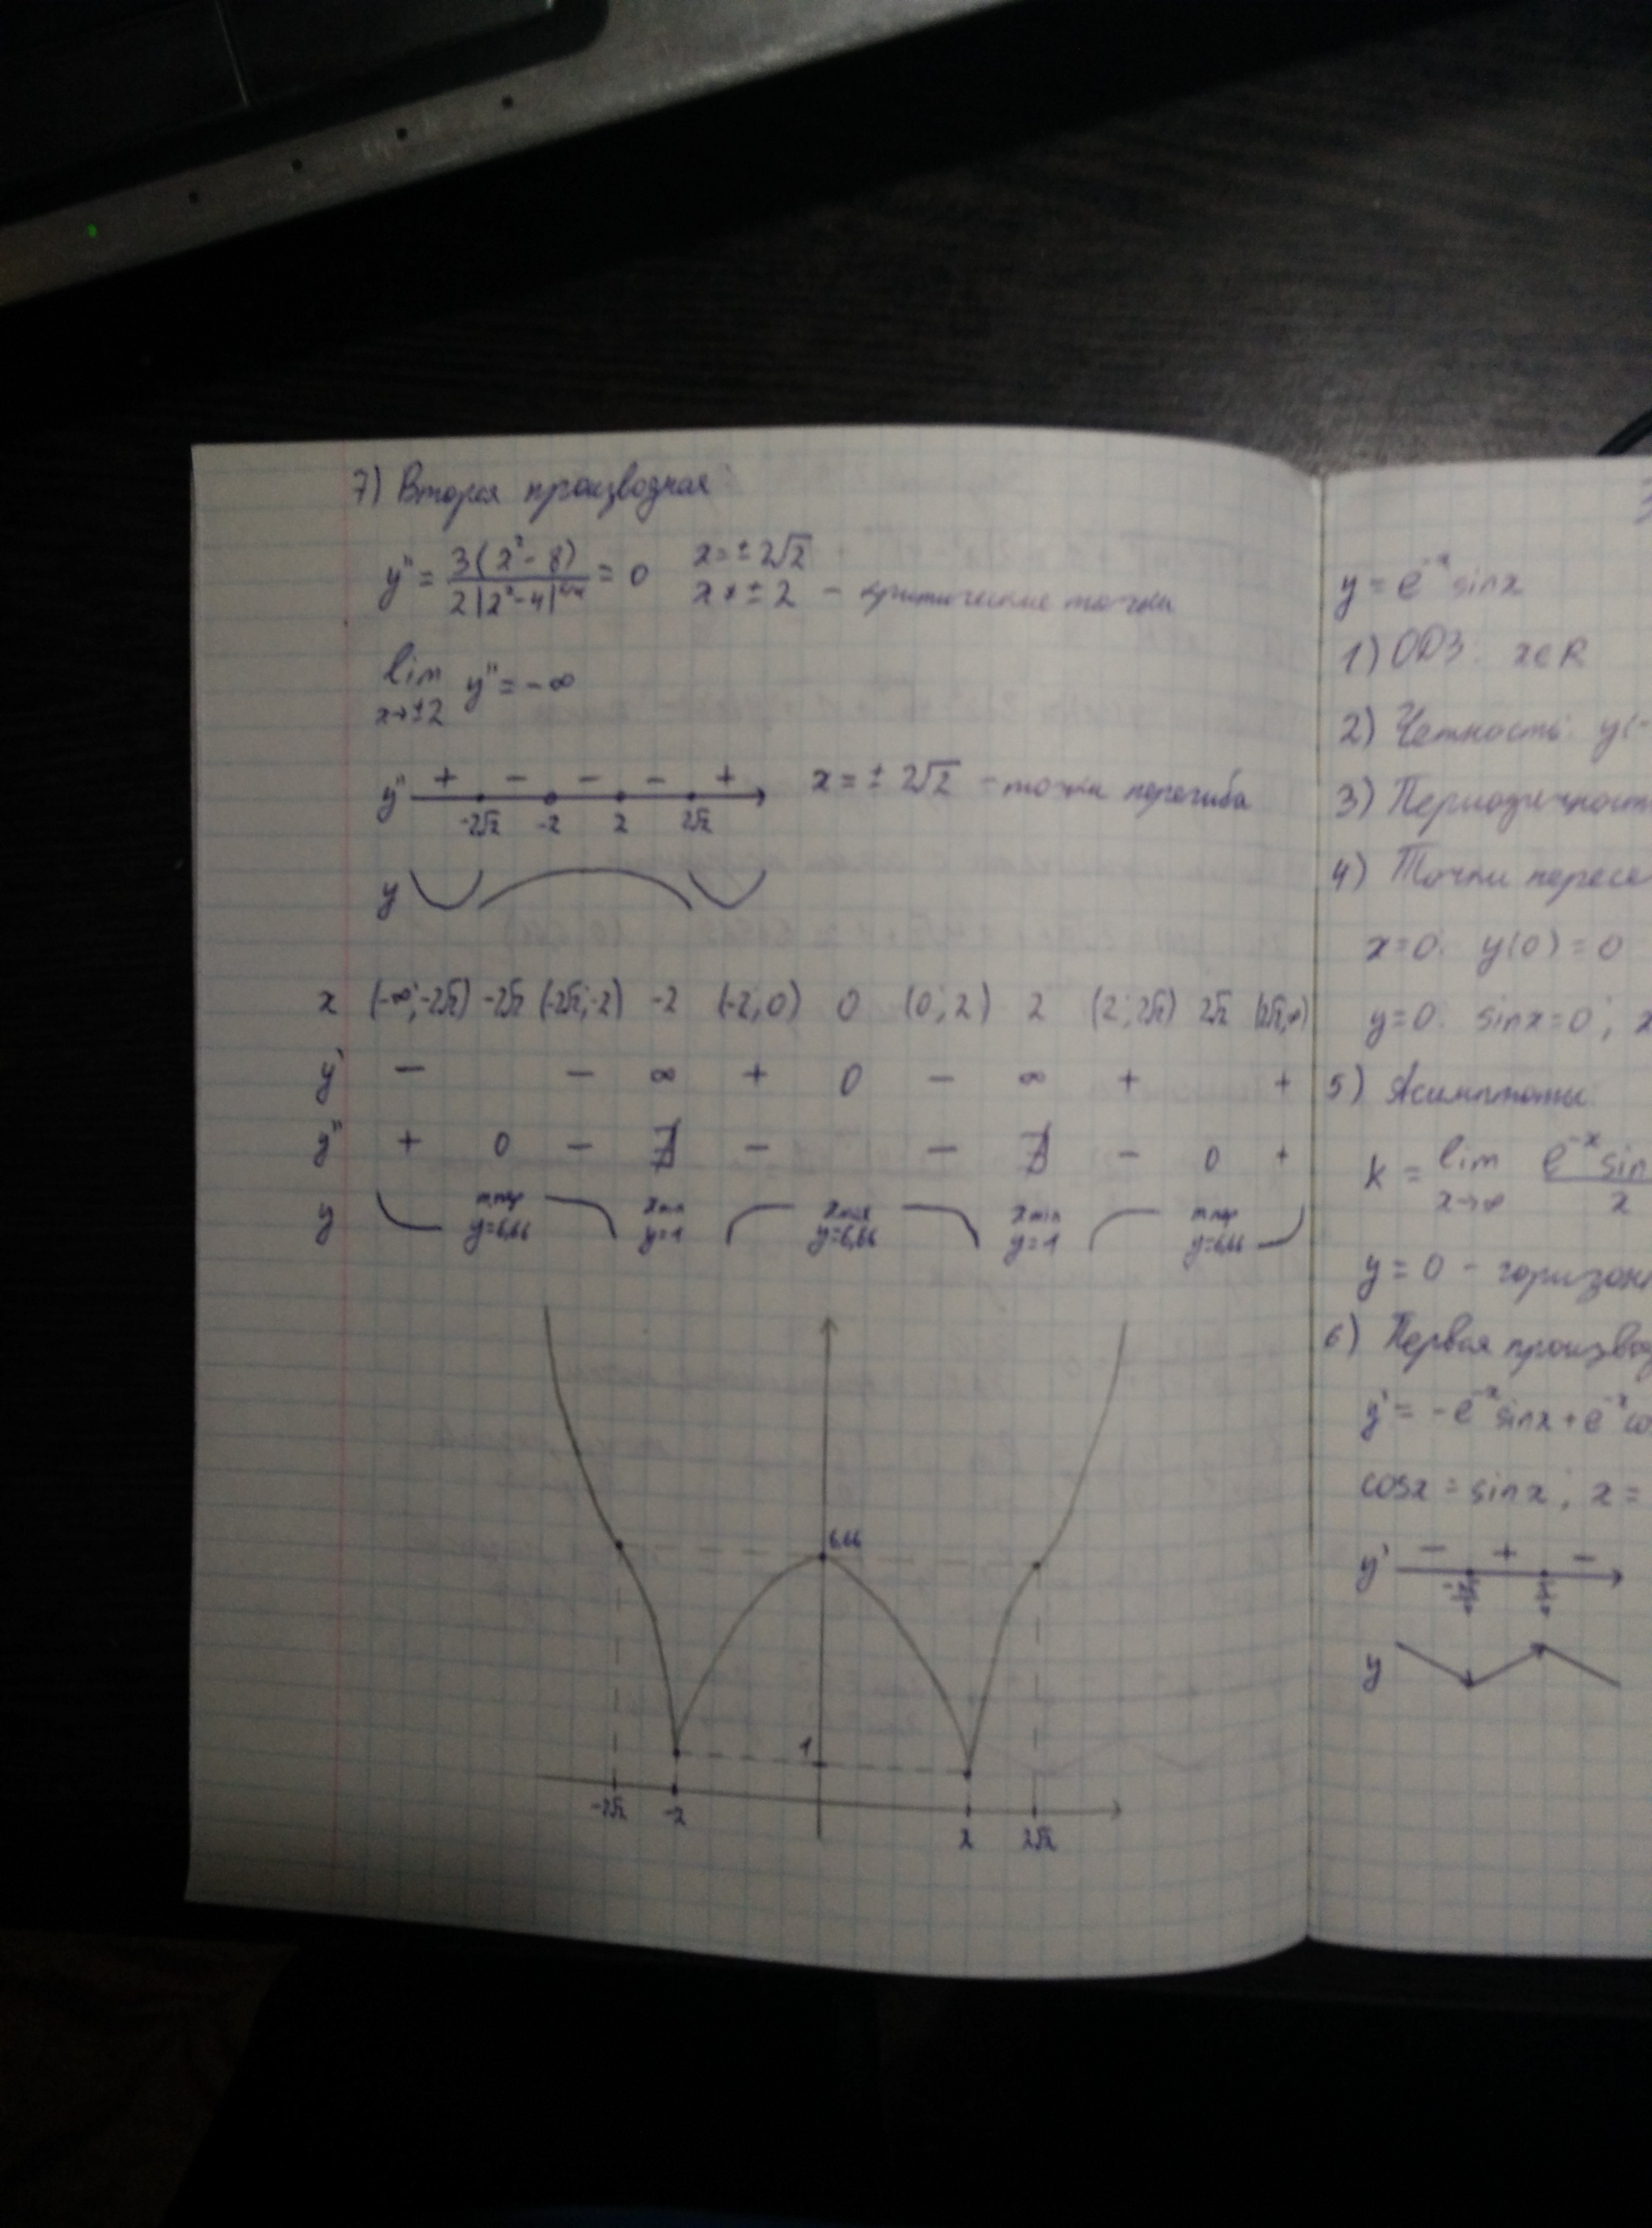 7) Вторая производная:
y'' = 3(x² - 8) / 2|x² - 4| = 0   x = ± 2√2
x ≠ ± 2 - критические точки
lim y'' = -∞
x→±2
y'' + - - - +   x = ± 2√2 - точки перегиба
-2√2 -2 2 2√2
y
x (-∞; -2√2) -2√2 (-2√2; -2) -2 (-2; 0) 0 (0; 2) 2 (2; 2√2) 2√2 (2√2; ∞)
y' - - ∞ + 0 - ∞ + +
y'' + 0 - ∄ - - ∄ - 0 +
y т.пер xmin xmax xmin т.пер
y=6,66 y=1 y=6,66 y=1 y=6,66
6,66
1
-2√2 -2 2 2√2
3
y = e⁻ˣ sinx
1) ОДЗ: x∈R
2) Четность: y(-
3) Периодичност
4) Точки пересе
x=0: y(0) = 0
y=0: sinx=0; x
5) Асимптоты:
k = lim e⁻ˣ sin / x
x→∞
y = 0 - горизон
6) Первая произво
y' = -e⁻ˣ sinx + e⁻ˣ co
cosx = sinx; x =
y' - + -
y